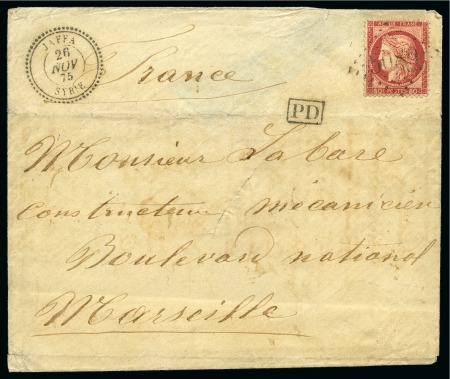 JAFFA
26
NOV
75
SYRIE
France
REPUB. FRANC.
80 POSTES 80
PD
Monsieur Labare
constructeur mécanicien
Boulevard national
Marseille